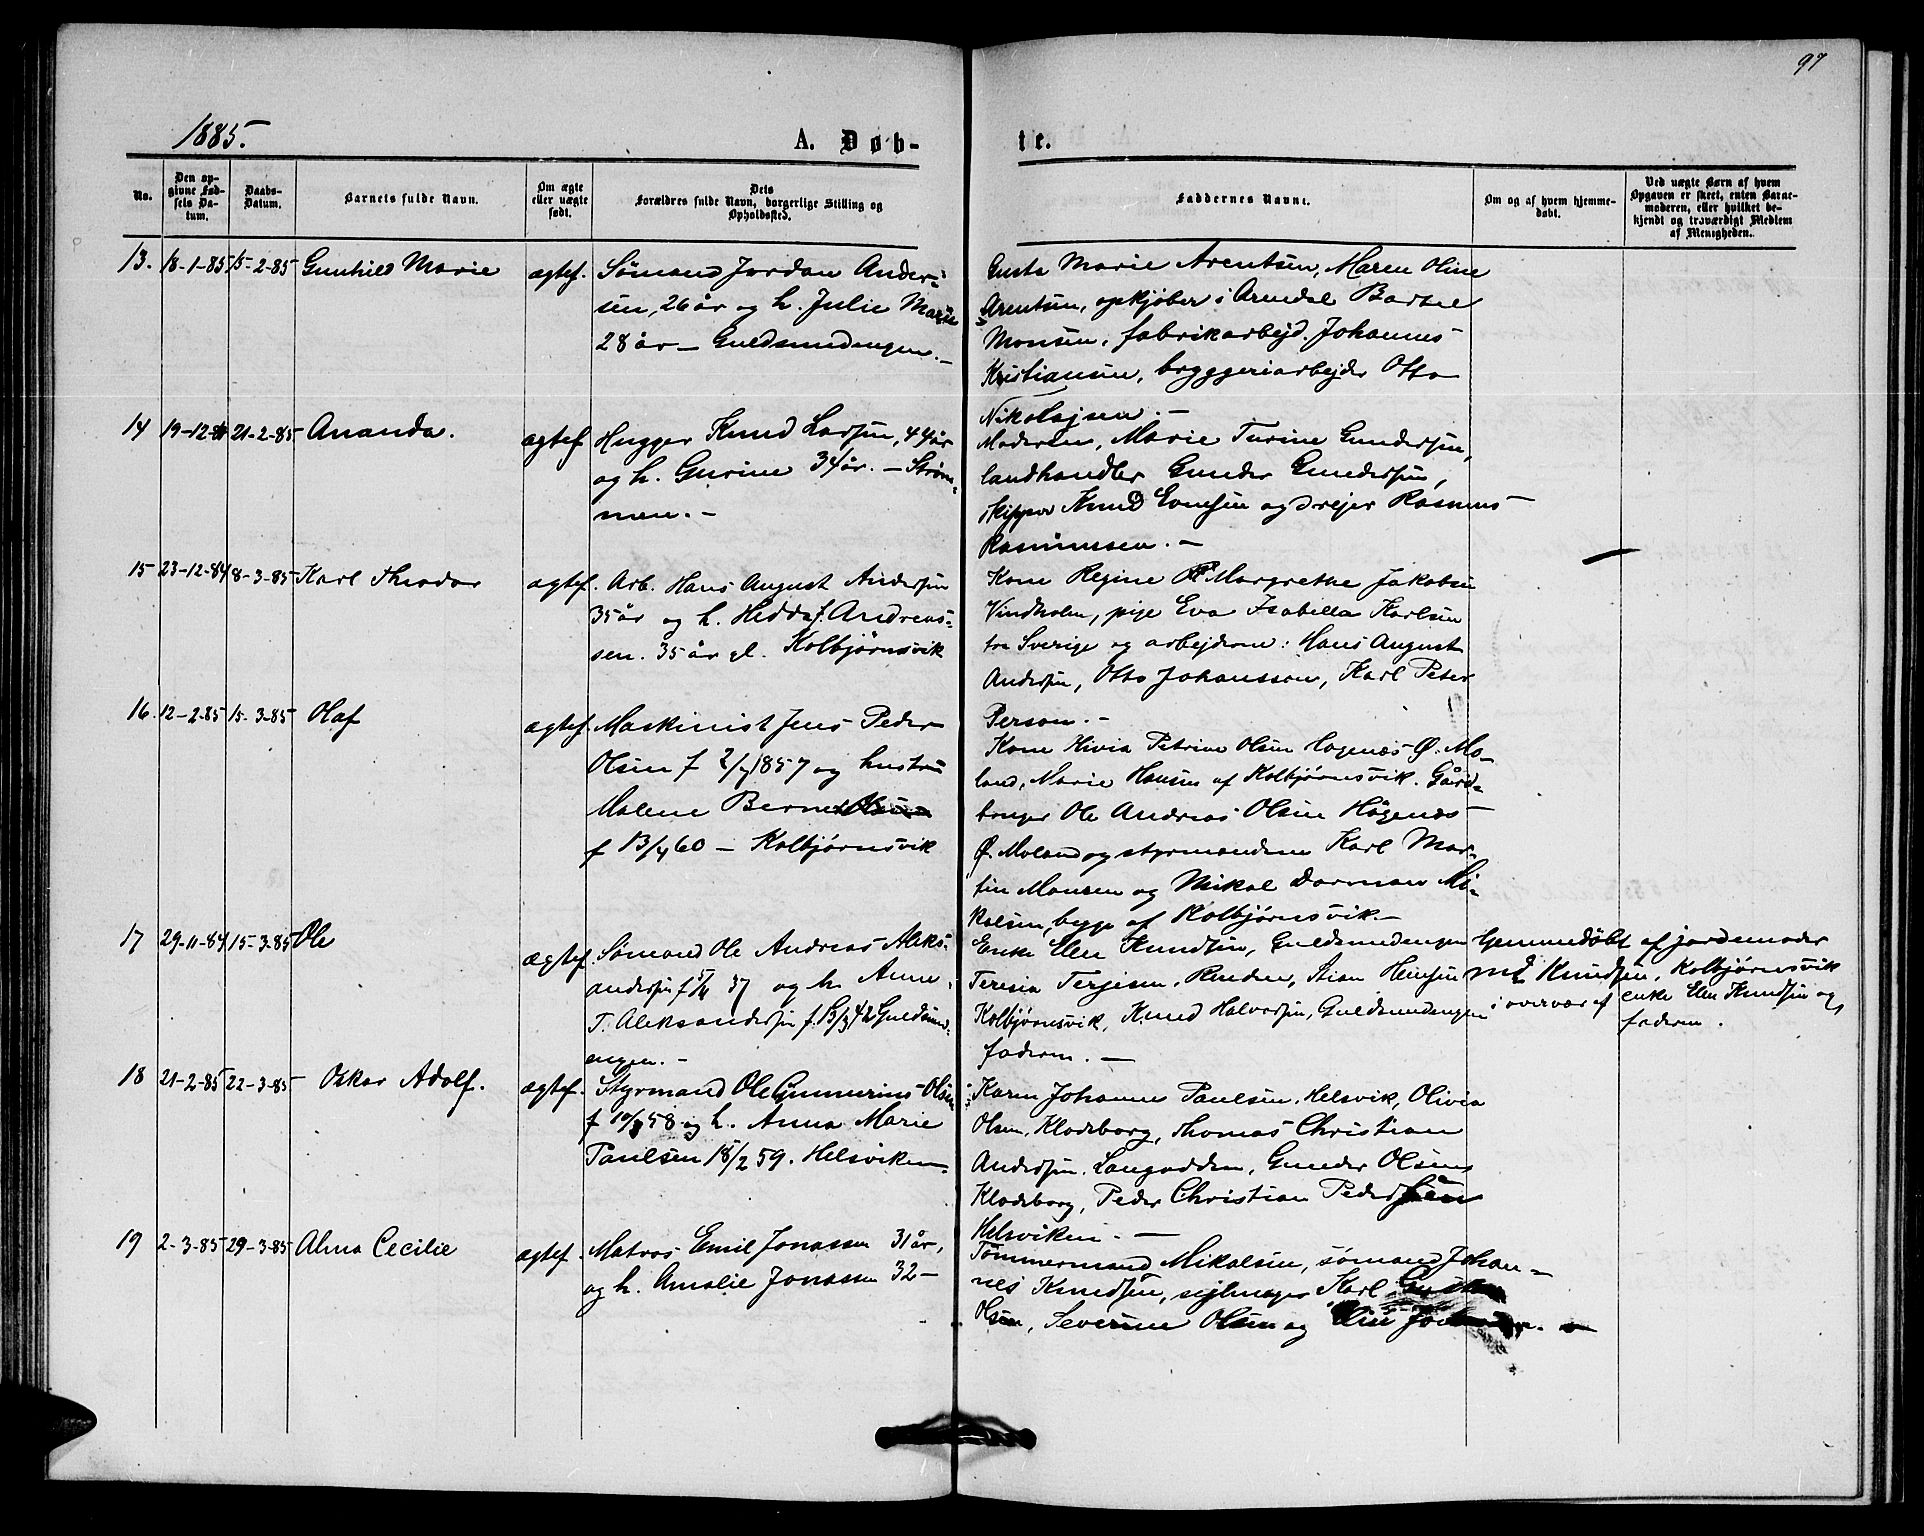 97
1885.
A. Døb-
te.
No.
Den op-
givne Fød-
sels Da-
tum.
Daabs-
Datum.
Barnets fulde Navn.
Om ægte
eller uægte
født.
Dets
Forældres fulde Navn, borgerlige Stilling og
Opholdssted.
Faddernes Navne.
Om og af hvem hjemme-
døbt.
Ved uægte Børn af hvem
Opgaven er skeet, enten Barne-
moderen, eller hvilket be-
kjendt og troværdigt Medlem
af Menigheden.
13. 18-1-85 15-2-85 Gunhild Marie
ægtef. Sømand Jordan Ander-
sen, 26 år og h. Julie Marie
28 år - Guldsmedengen. -
Marie Arentsen, Maren Oline
Arentsen, opkjøber i Arendal
Monsen, fabrikarbejd. Johannes
Kristiansen, bryggeriarbejder Otto
Nikolajsen. -
14 19-12-84 21-2-85 Ananda.
ægtef Hugger Knud Larsen, 44 år
og h. Gurine 34 år. - Strøm-
men. -
Moderen, Marie Turine Gundersen,
landhandler Gunder Gundersen,
skipper Knud Evensen og drejer Rasmus
Rasmussen. -
15 23-12-84 8-3-85 Karl Theodor
ægtef. Arb. Hans August Andersen
35 år og h. Hedda f. Andreas-
sen. 35 år gl. Kolbjørnsvik
Kone Regine Margrethe Jakobsen
Vindholm, pige Eva Isabella Karlsen
fra Sverige og arbejderne: Hans August
Andersen, Otto Johansson, Karl Peter
Person. -
16. 12-2-85 15-3-85 Olaf
ægtef. Maskinist Jens Peder
Olsen f 2/7 1857 og hustru
Malene Bernt
f 13/4 60 - Kolbjørnsvik
Kone Petrine Olsen Høgenæs Ø. Mo-
land, Marie Hansen af Kolbjørnsvik. Gård-
bruger Ole Andreas Olsen Høgenæs
Ø. Moland og styrmændene Karl Mar-
tin Monsen og Mikal Dorman Mi-
kalsen, begge af Kolbjørnsvik. -
17 29-11-84 15-3-85 Ole
ægtef. Sømand Ole Andreas Aleks-
andersen f 37 og h. Anne
T. Aleksandersen f. 13/3 42 Guldsmed-
engen. -
Enke Elen Knudsen, Guldsmedengen
Teresia Terjesen, Stian Heinsen
Kolbjørnsvik, Knud Halvorsen, Guldsmedengen
faderen. -
hjemmedøbt af jordemoder
Knudsen, Kolbjørnsvik
i overvær af enke Elen Knudsen og
faderen.
18 21-2-85 22-3-85 Oskar Adolf.
ægtef. Styrmand Ole Gunnerius Olsen
f 58 og h. Anna Marie
Paulsen 18/2 59. Helsviken.
Karen Johanne Paulsen, Helsvik, Olivia
Olsen, Klodeborg, Thomas Christian
Andersen, Langodden, Gunder Olsen
Klodeborg, Peder Christian Pedersen
Helsviken. -
19 2-3-85 29-3-85 Alma Cecilie
ægtef. Matros Emil Jonassen 31 år,
og h. Amalie Jonassen 32 -
Tømmermand Mikalsen, sømand Johan-
nes Knudsen, sejlmager Karl
Olsen, Severine Olsen og